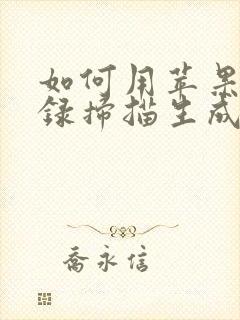 如何用苹果
録掃描生成
喬永信